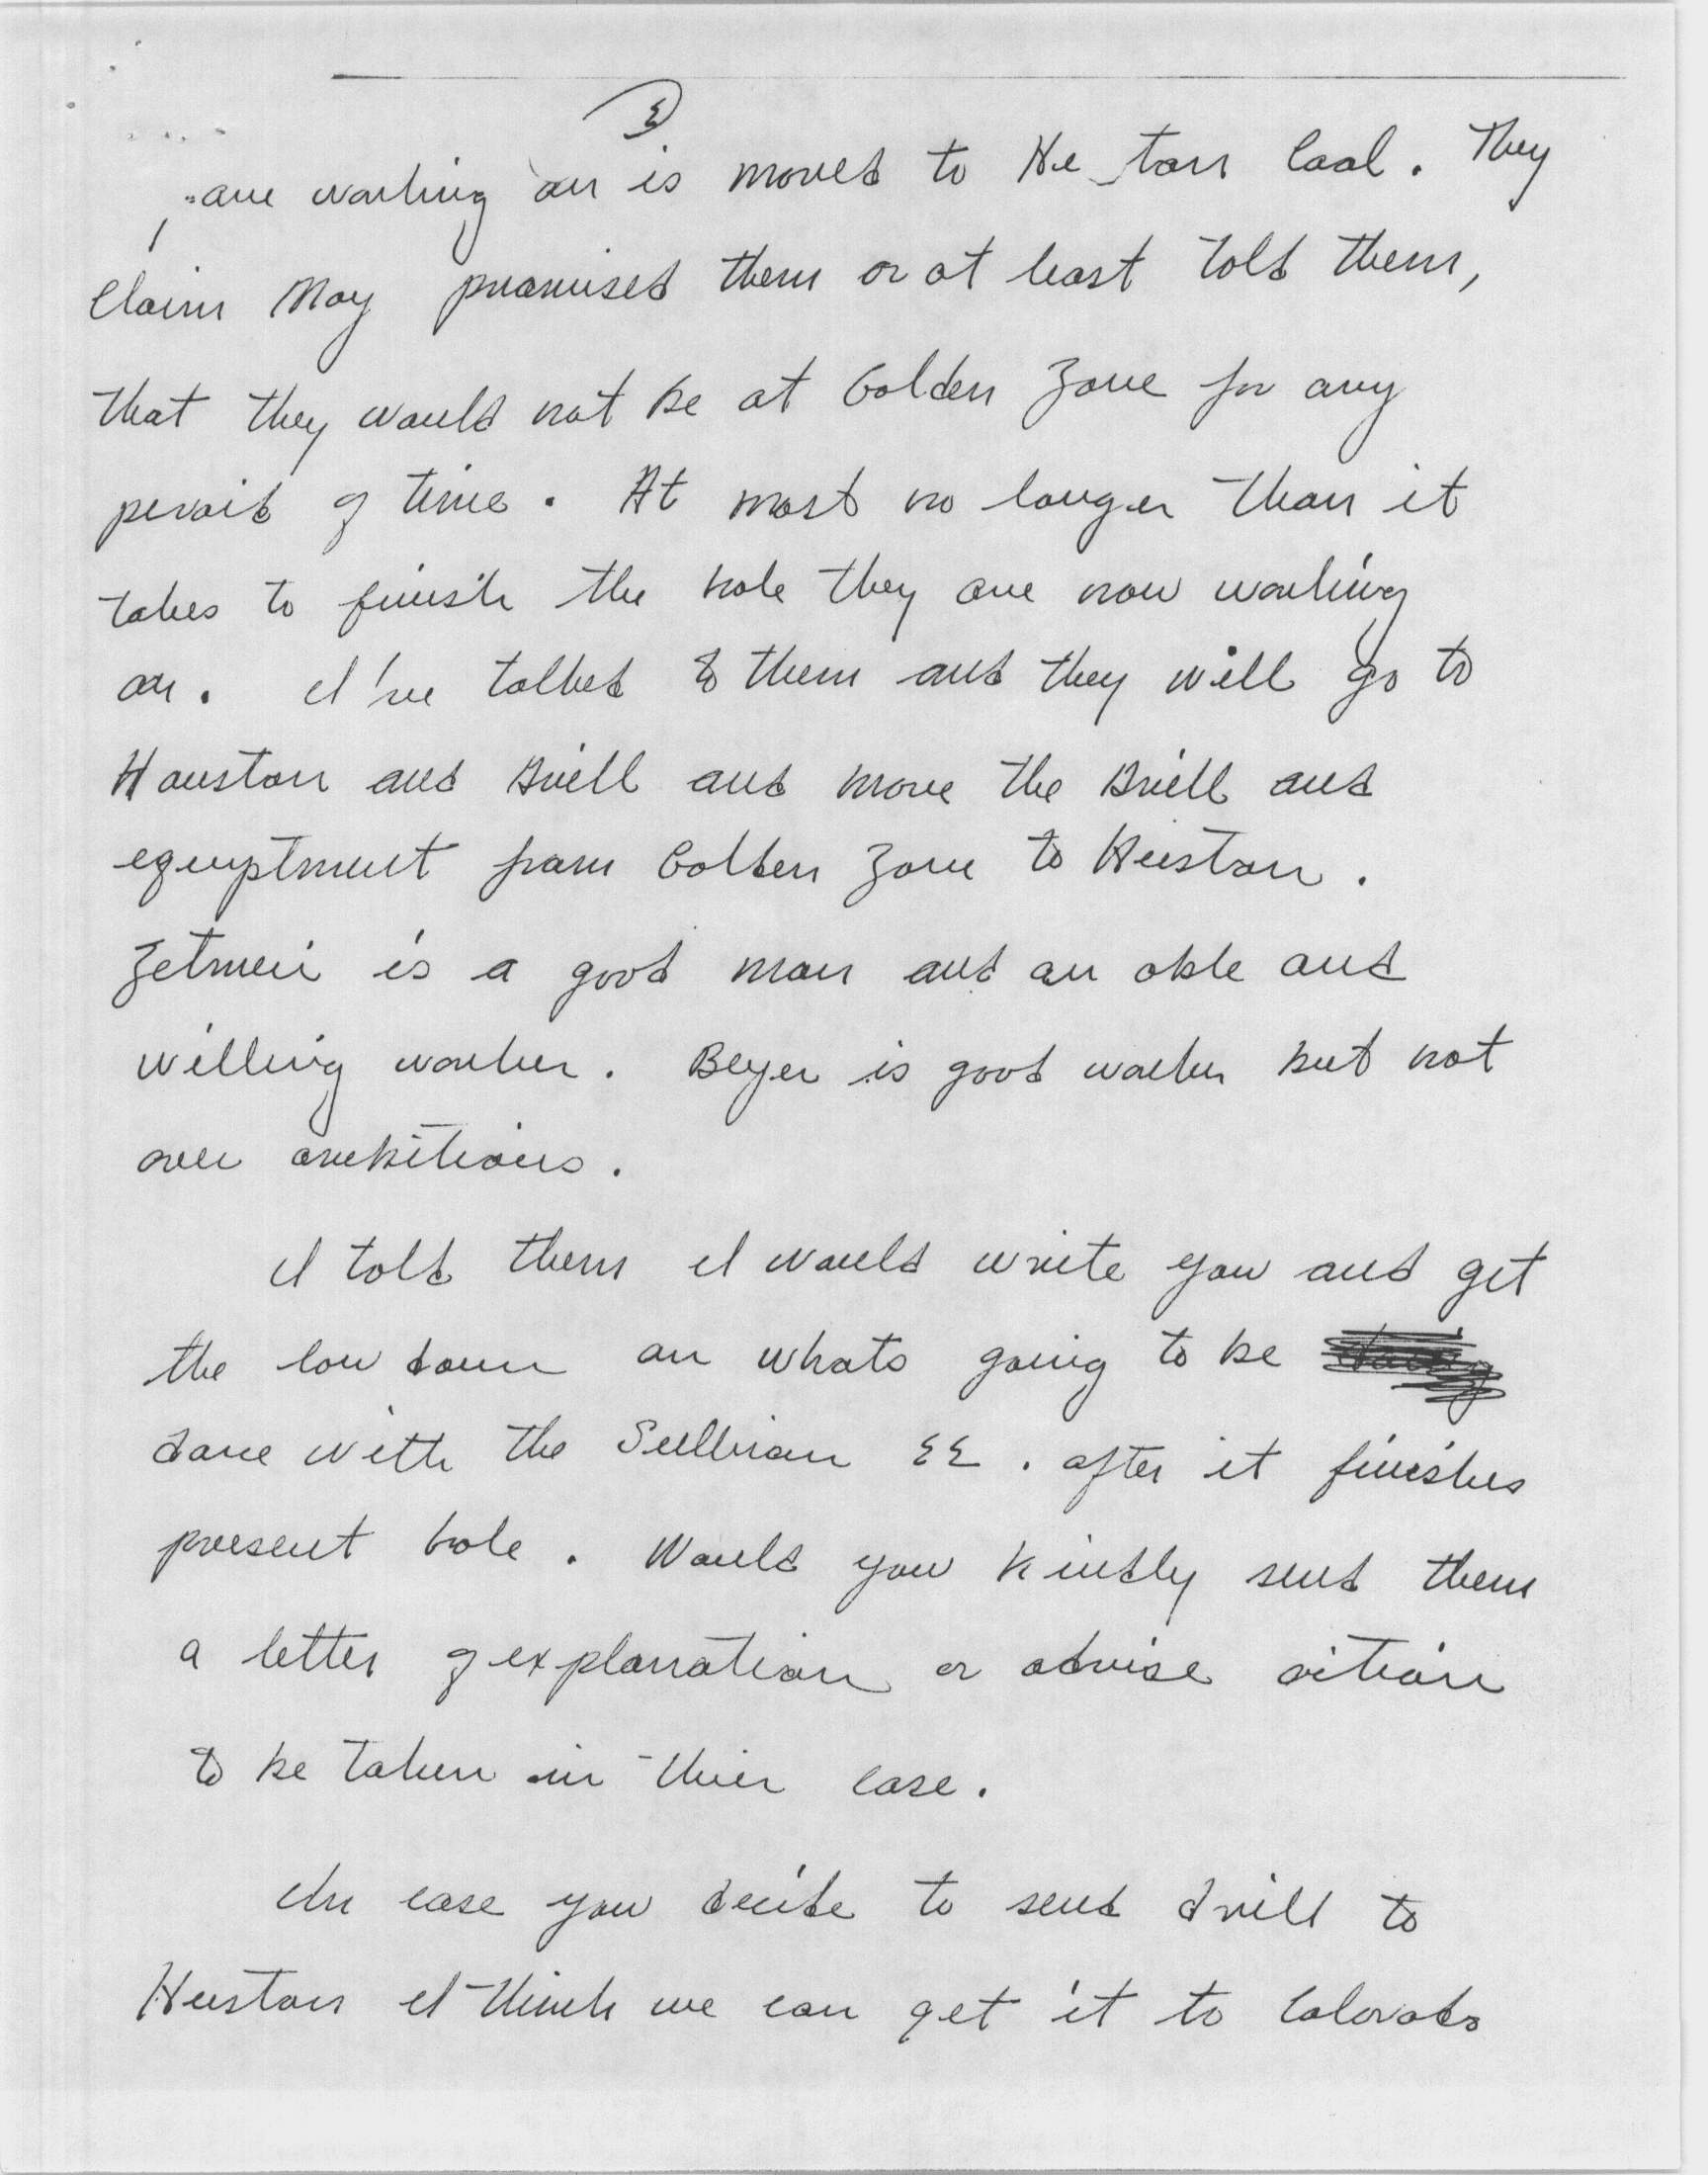 2
are working on is moved to Houston Coal. They
claim May promised them or at least told them,
that they would not be at Golden Zone for any
peroid of time. At most no longer than it
takes to finish the hole they are now working
on. I've talked to them and they will go to
Houston and Drill and move the Drill and
equiptment from Golden Zone to Huston.
is a good man and an able and
willing worker. Beyer is good worker but not
over ambitious.
I told them I would write you and get
the low down on whats going to be
done with the Sullivan 22. after it finishes
present hole. Would you kindly send them
a letter of explanation or advise
to be taken in thier case.
In case you decide to send drill to
Huston I think we can get it to Colorado